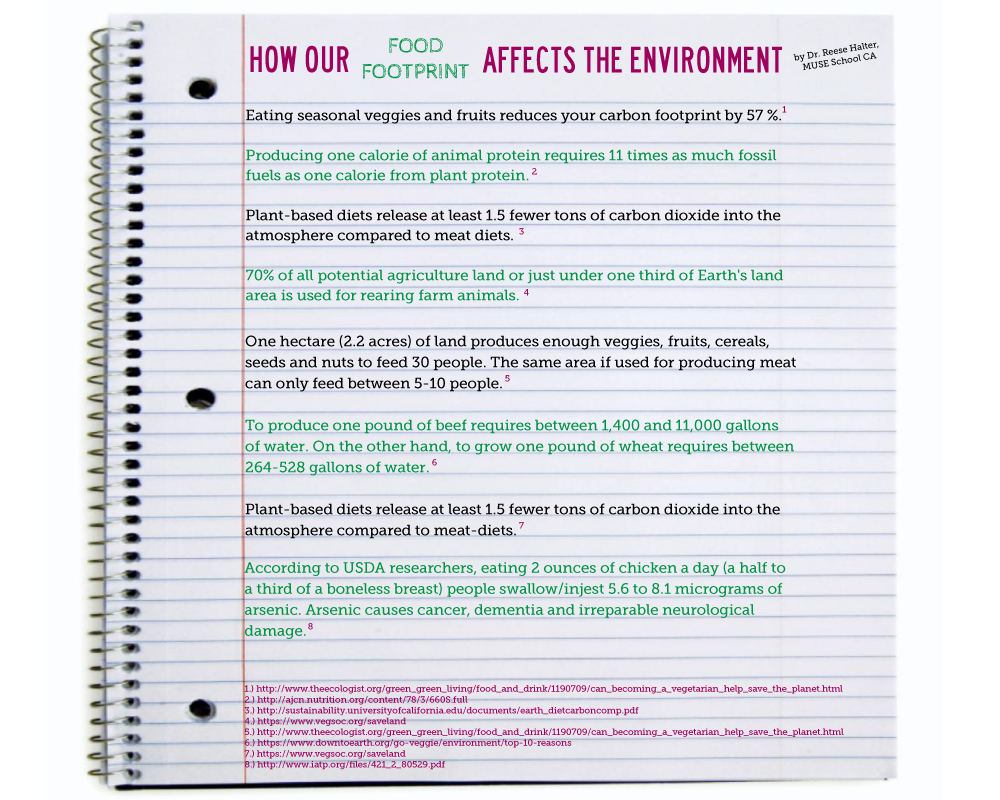 HOW OUR FOOD FOOTPRINT AFFECTS THE ENVIRONMENT
by Dr. Reese Halter,
MUSE School CA
Eating seasonal veggies and fruits reduces your carbon footprint by 57 %.1
Producing one calorie of animal protein requires 11 times as much fossil
fuels as one calorie from plant protein. 2
Plant-based diets release at least 1.5 fewer tons of carbon dioxide into the
atmosphere compared to meat diets. 3
70% of all potential agriculture land or just under one third of Earth's land
area is used for rearing farm animals. 4
One hectare (2.2 acres) of land produces enough veggies, fruits, cereals,
seeds and nuts to feed 30 people. The same area if used for producing meat
can only feed between 5-10 people.5
To produce one pound of beef requires between 1,400 and 11,000 gallons
of water. On the other hand, to grow one pound of wheat requires between
264-528 gallons of water.6
Plant-based diets release at least 1.5 fewer tons of carbon dioxide into the
atmosphere compared to meat-diets.7
According to USDA researchers, eating 2 ounces of chicken a day (a half to
a third of a boneless breast) people swallow/injest 5.6 to 8.1 micrograms of
arsenic. Arsenic causes cancer, dementia and irreparable neurological
damage.8
1.) http://www.theecologist.org/green_green_living/food_and_drink/1190709/can_becoming_a_vegetarian_help_save_the_planet.html
2.) http://ajcn.nutrition.org/content/78/3/660S.full
3.) http://sustainability.universityofcalifornia.edu/documents/earth_dietcarboncomp.pdf
4.) https://www.vegsoc.org/saveland
5.) http://www.theecologist.org/green_green_living/food_and_drink/1190709/can_becoming_a_vegetarian_help_save_the_planet.html
6.) https://www.downtoearth.org/go-veggie/environment/top-10-reasons
7.) https://www.vegsoc.org/saveland
8.) http://www.iatp.org/files/421_2_80529.pdf